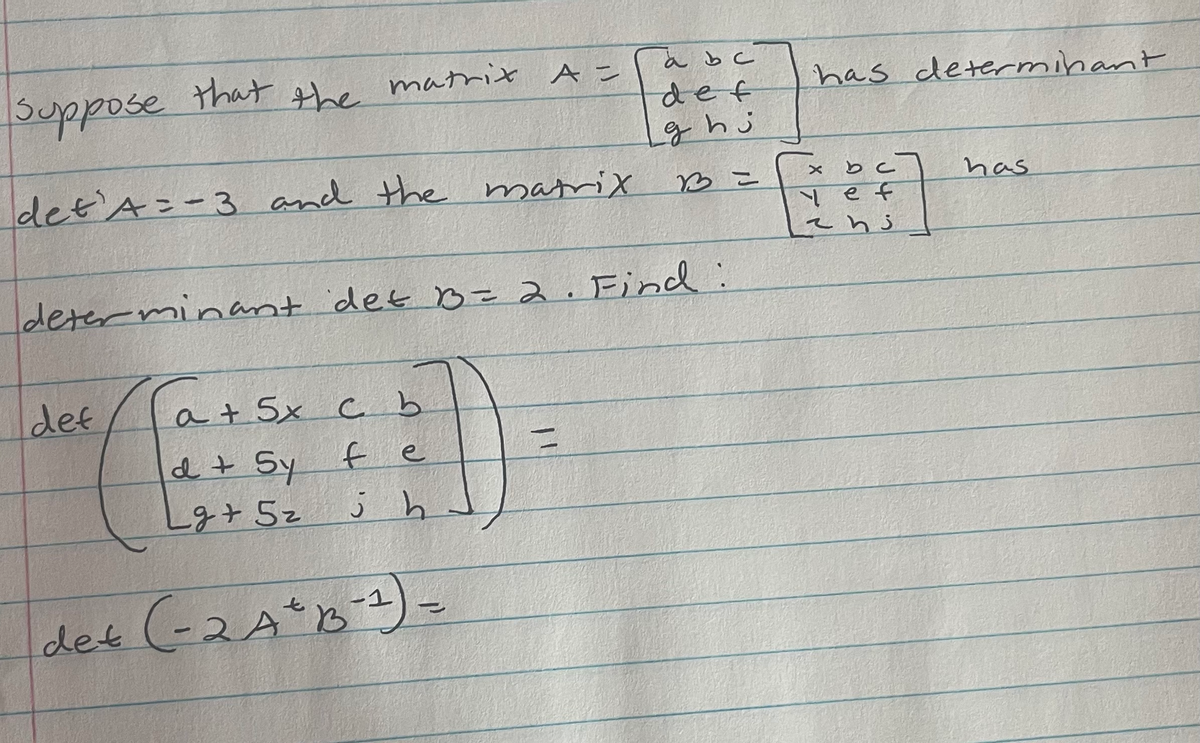 suppose that the matrix A = [a b c
d e f
g h j] has determinant
det A = -3 and the matrix B = [x b c
y e f
z h j] has
determinant det B = 2. Find:
det ([a + 5x c b
d + 5y f e
g + 5z j h]) =
det (-2 Aᵗ B⁻¹) =